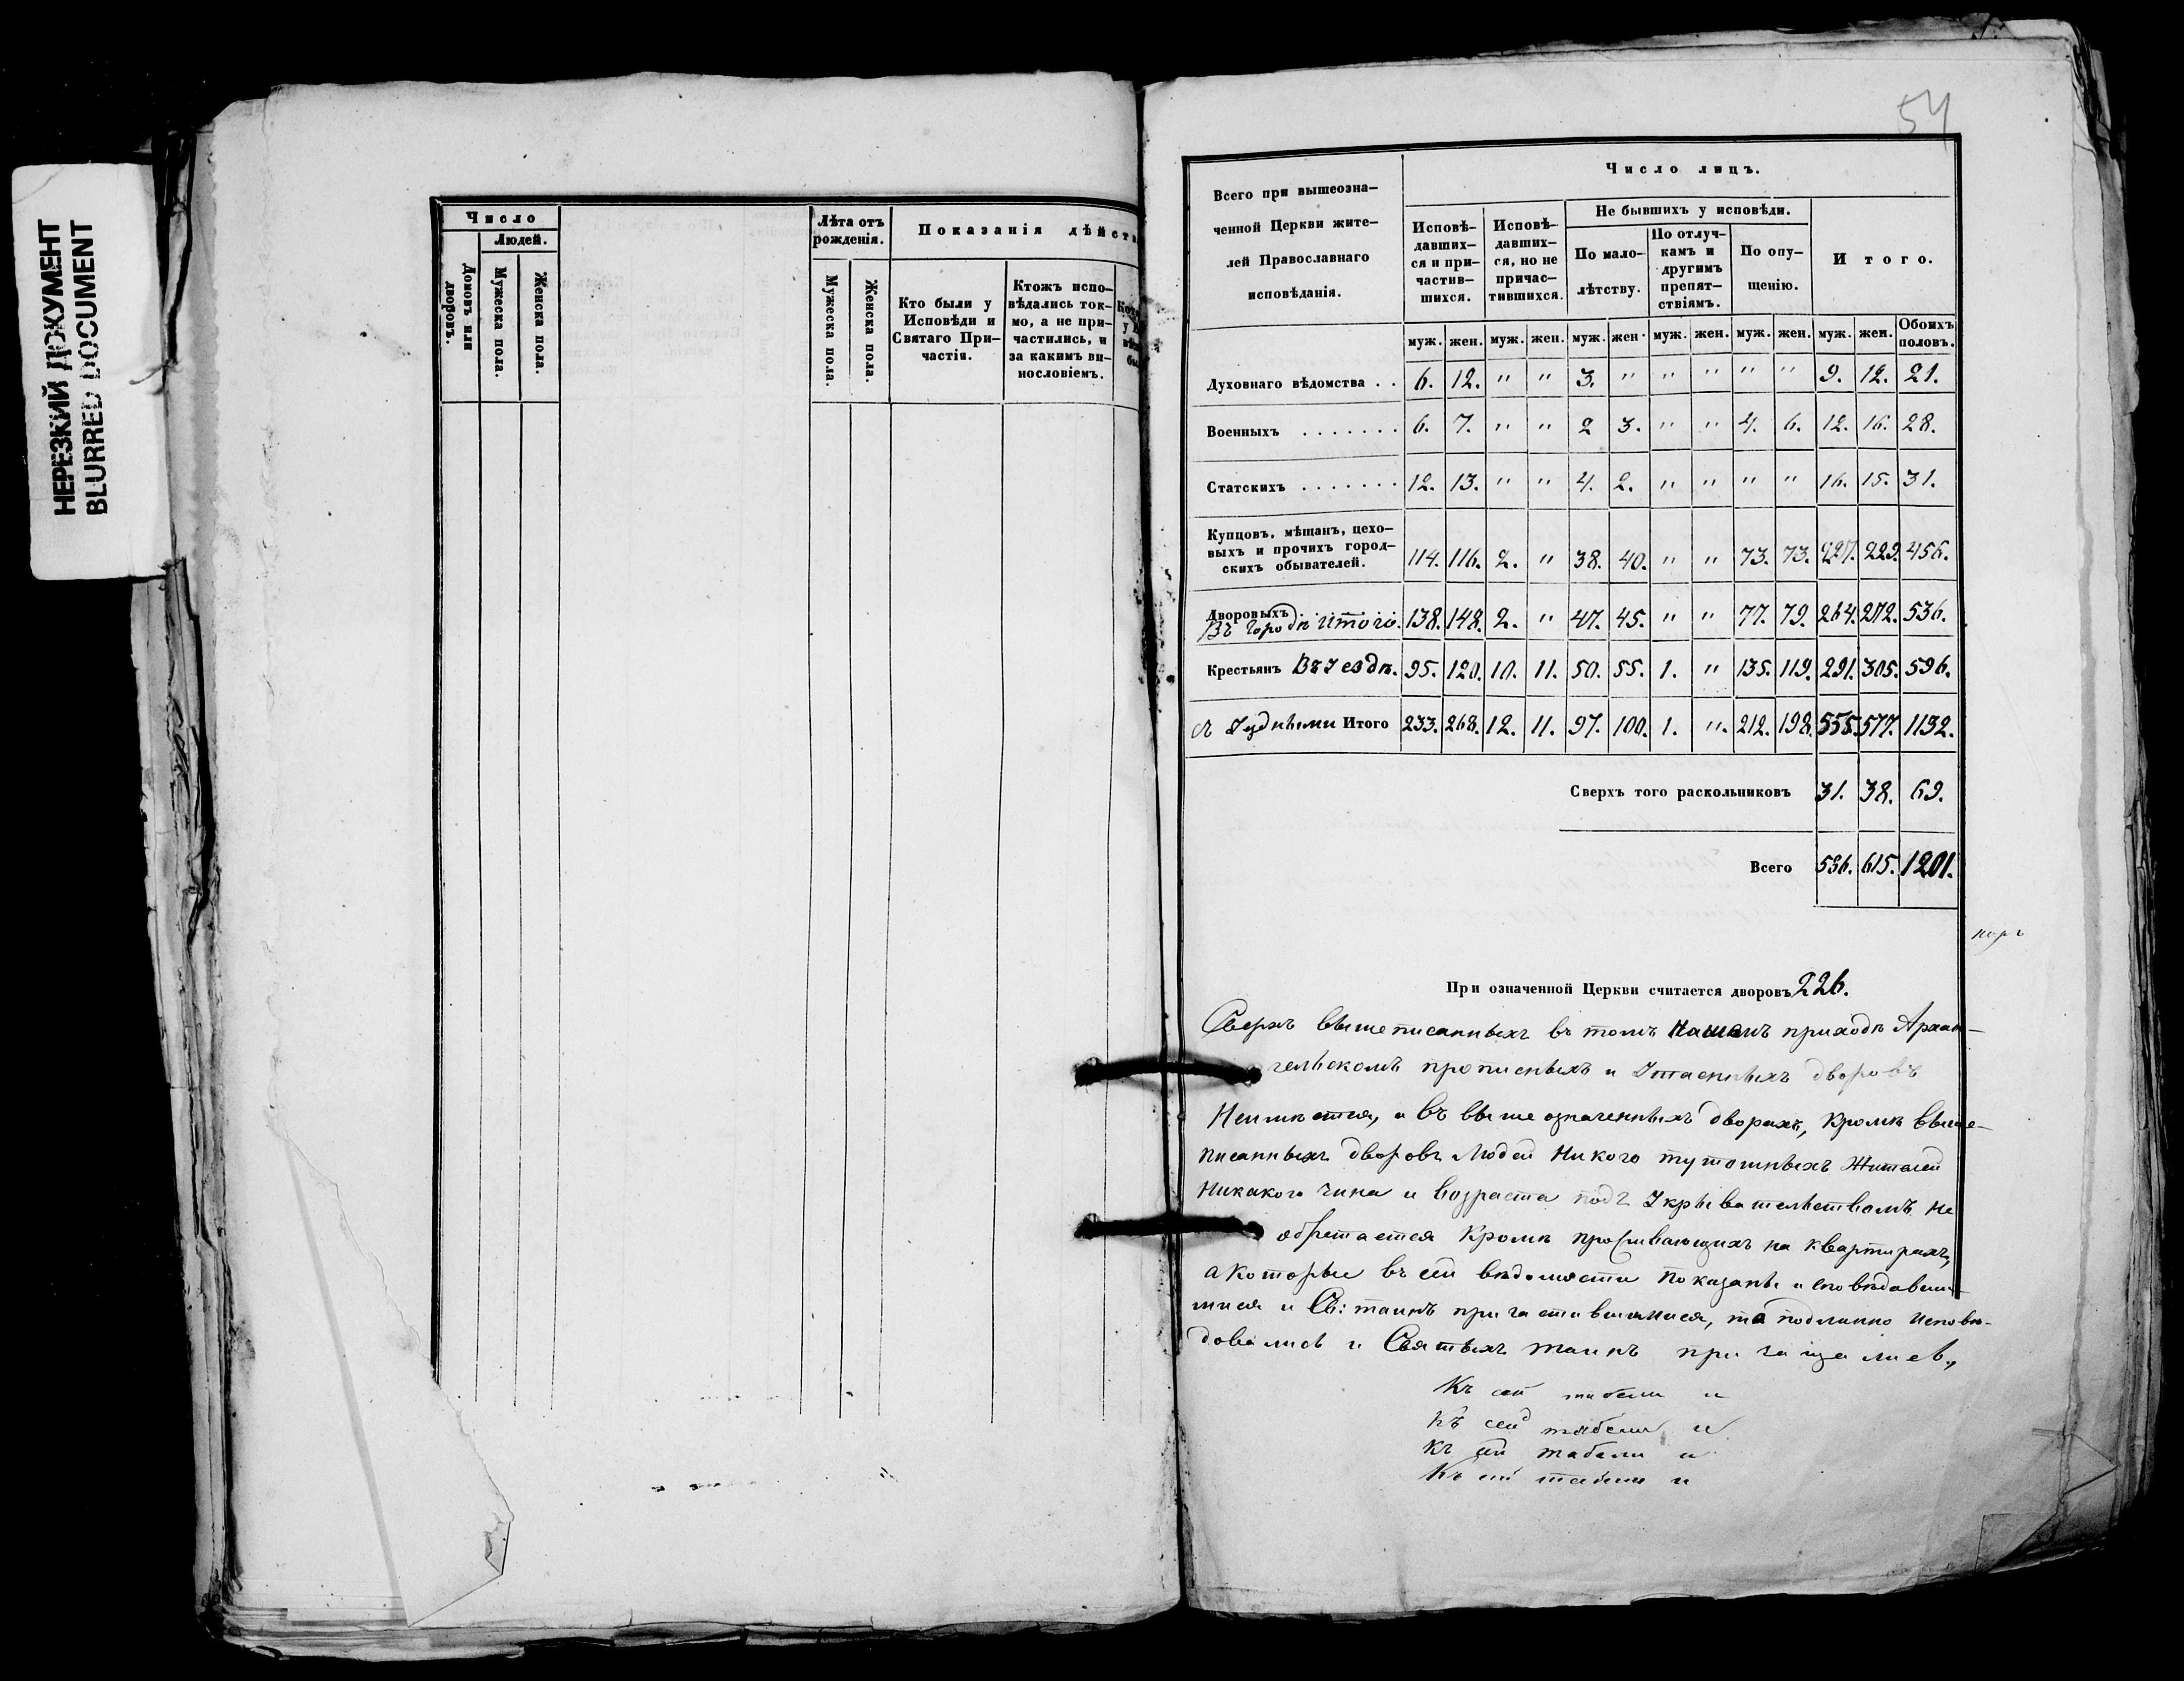 НЕРЕЗКИЙ ДОКУМЕНТ
BLURRED DOCUMENT
Число
Людей.
Домовъ или дворовъ.
Мужеска пола.
Женска пола.
Лѣта отъ рожденія.
Мужеска пола.
Женска пола.
Показанія дѣйств
Кто были у Исповѣди и Святаго При-
частія.
Ктожъ испо-
вѣдались ток-
мо, а не при-
частились, и
за какимъ ви-
нословіемъ.
54
Всего при вышеозна-
ченной Церкви жите-
лей Православнаго
исповѣданія.
Число лицъ.
Исповѣ-
давших-
ся и при-
частив-
шихся.
Исповѣ-
давших-
ся, но не
причас-
тившихся.
Не бывшихъ у исповѣди.
По мало-
лѣтству.
По отлуч-
камъ и
другимъ
препят-
ствіямъ.
По опу-
щенію.
Итого.
муж. жен. муж. жен. муж. жен. муж. жен. муж. жен. муж. жен. Обоихъ половъ.
Духовнаго вѣдомства . . 6. 12. " " 3. " " " " " 9. 12. 21.
Военныхъ . . . . . . . 6. 7. " " 2 3. " " 4. 6. 12. 16. 28.
Статскихъ . . . . . . . 12. 13. " " 4. 2. " " " " 16. 15. 31.
Купцовъ, мѣщанъ, цехо-
выхъ и прочихъ город-
скихъ обывателей. 114. 116. 2. " 38. 40. " " 73. 73. 227. 229. 456.
Дворовыхъ
Въ Городѣ итого. 138. 148. 2. " 47. 45. " " 77. 79. 264. 272. 536.
Крестьянъ Въ Уездѣ. 95. 120. 10. 11. 50. 55. 1. " 135. 119. 291. 305. 596.
съ Уездными Итого 233. 268. 12. 11. 97. 100. 1. ". 212. 198. 555. 577. 1132.
Сверхъ того раскольниковъ 31. 38. 69.
Всего 586. 615. 1201.
При означенной Церкви считается дворовъ 226.
Сверхъ вышеписанныхъ въ томъ нашемъ приходѣ Архан-
гельскомъ прописныхъ и Утаенныхъ дворовъ
Неимѣется, а въ вышеозначенныхъ дворахъ, кромѣ выше-
писанныхъ дворовъ людей Никого тутошныхъ Жителей
Никакого чина и возраста подъ Укрывательствомъ не
обретается Кромѣ проживающихъ на квартирахъ,
а Которые въ сей вѣдомости показаны исповѣдавши-
мися и Св: таинъ причастившимися, тѣ подлинно Исповѣ-
довались и Святыхъ таинъ причащались,
Къ сей табели и
Къ сей табели и
Къ сей табели и
Къ сей табели и